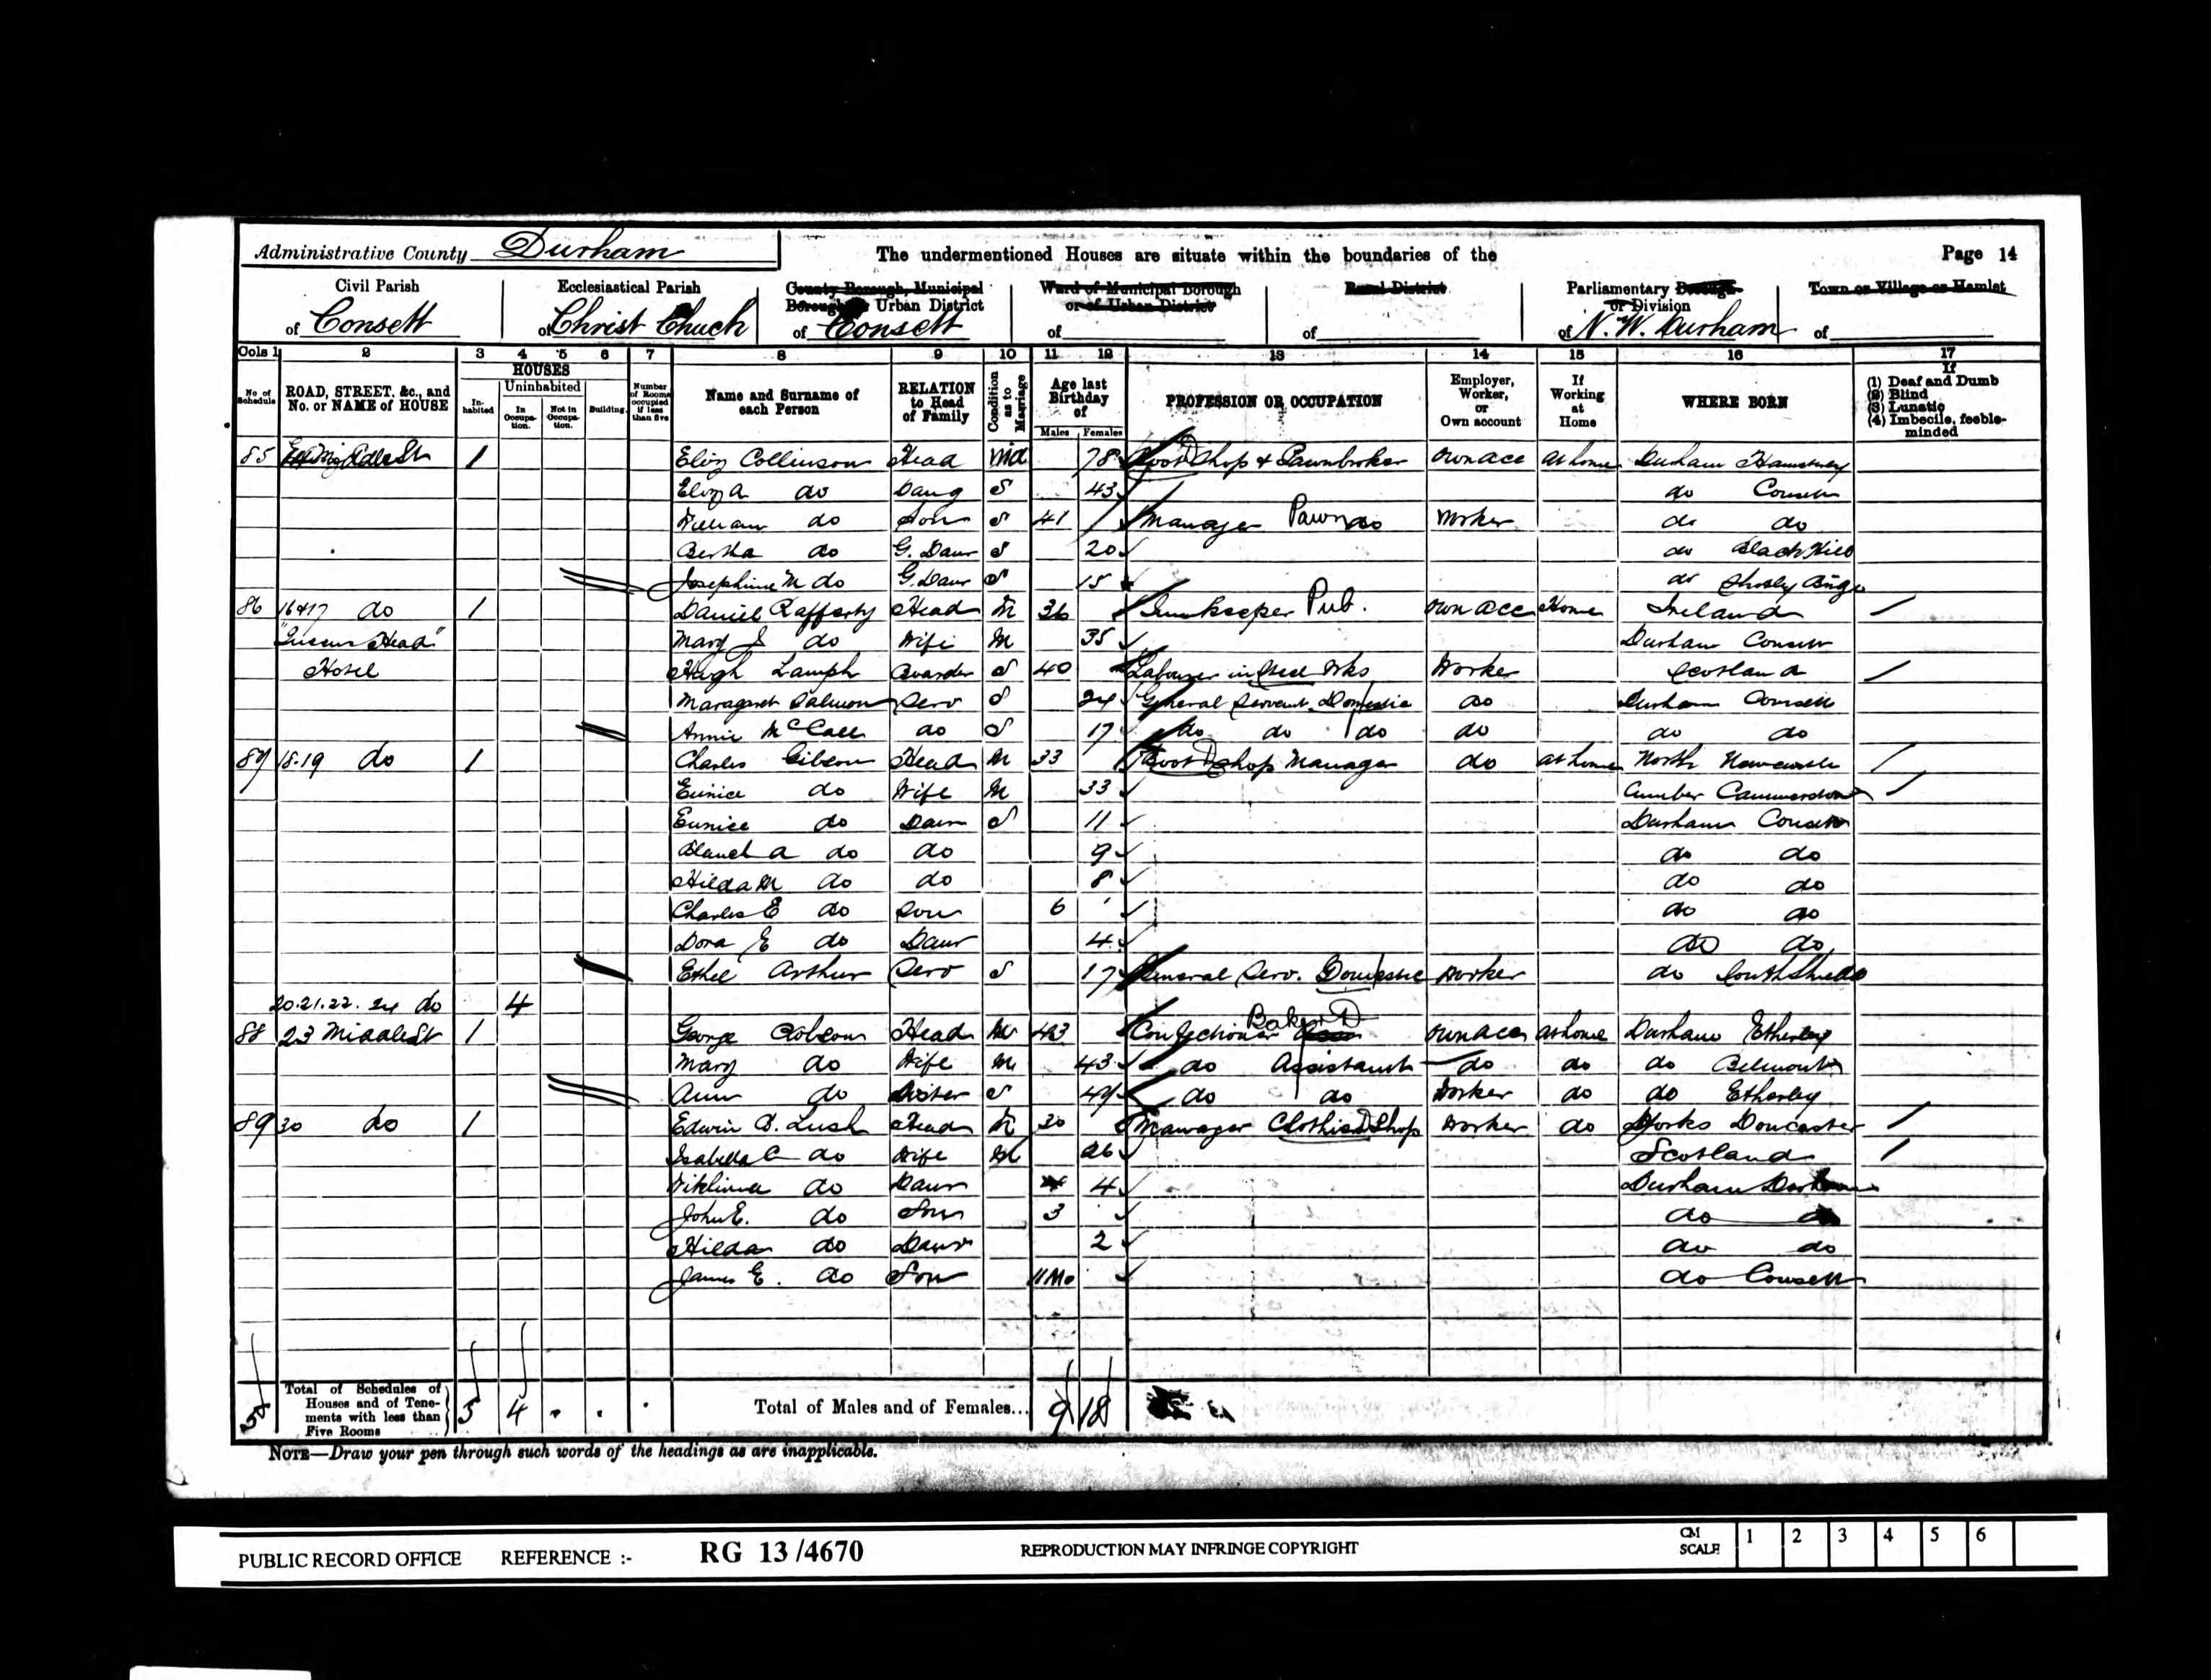 Administrative County Durham The undermentioned Houses are situate within the boundaries of the Page 14
Civil Parish Ecclesiastical Parish County Borough, Municipal Borough or Urban District Ward of Municipal Borough or of Urban District Rural District Parliamentary Borough or Division Town or Village or Hamlet
of Consett of Christ Chuch of Consett of of of N. W. Durham of
Cols 1 2 3 4 5 6 7 8 9 10 11 12 13 14 15 16 17
No of Schedule ROAD, STREET, &c., and No. or NAME of HOUSE HOUSES Inhabited Uninhabited In Occupation. Not in Occupation. Building. Number of Rooms occupied if less than five Name and Surname of each Person RELATION to Head of Family Condition as to Marriage Age last Birthday of Males Females PROFESSION OR OCCUPATION Employer, Worker, or Own account If Working at Home WHERE BORN If (1) Deaf and Dumb (2) Blind (3) Lunatic (4) Imbecile, feeble-minded
85 1 Eliz Collinson Head Wd 78 Boot Shop & Pawnbroker Own acc at home Durham Hamsterley
Eliz A do Daug S 43 do Consett
William do Son S 41 Manager Pawn do Worker do do
Bertha do G. Daur S 20 do Black Hill
Josephine M do G. Daur S 15 do Shotley Bridge
86 16 & 17 do 1 Daniel Rafferty Head M 36 Innkeeper Pub. Own acc Home Ireland
"Queens Head" Mary J do Wife M 35 Durham Consett
Hotel Hugh Lamph Boarder S 40 Labourer in Steel Wks Worker Scotland
Maragaret Salmon Serv S 24 General Servant Domestic do Durham Consett
Annie McCall do S 17 do do do do do do
87 18-19 do 1 Charles Gibson Head M 33 Boot Shop Manager do at home North Newcastle
Eunice do Wife M 33 Cumber
Eunice do Daur S 11 Durham Consett
Blanch A do do 9 do do
Hilda M do do 8 do do
Charles E do Son 6 do do
Dora E do Daur 4 do do
Ethel Arthur Serv S 17 General Serv. Domestic Worker do South Shields
20.21.22. 24 do 4
88 23 Middle St 1 George Robson Head M 43 Confectioner Baker Own acc at home Durham Etherley
Mary do Wife M 43 do Assistant do do do Belmont
Ann do Sister S 49 do do Worker do do Etherley
89 30 do 1 Edwin B. Lush Head M 30 Manager Clothier Shop Worker do Yorks Doncaster
Isabella C do Wife M 26 Scotland
do Daur 4 Durham
John E. do Son 3 do do
Hilda do Daur 2 do do
James E. do Son 11 Mo do Consett
Total of Schedules of Houses and of Tenements with less than Five Rooms 5 4 Total of Males and of Females... 9 18
NOTE—Draw your pen through such words of the headings as are inapplicable.
PUBLIC RECORD OFFICE REFERENCE :- RG 13/4670 REPRODUCTION MAY INFRINGE COPYRIGHT CM SCALE 1 2 3 4 5 6